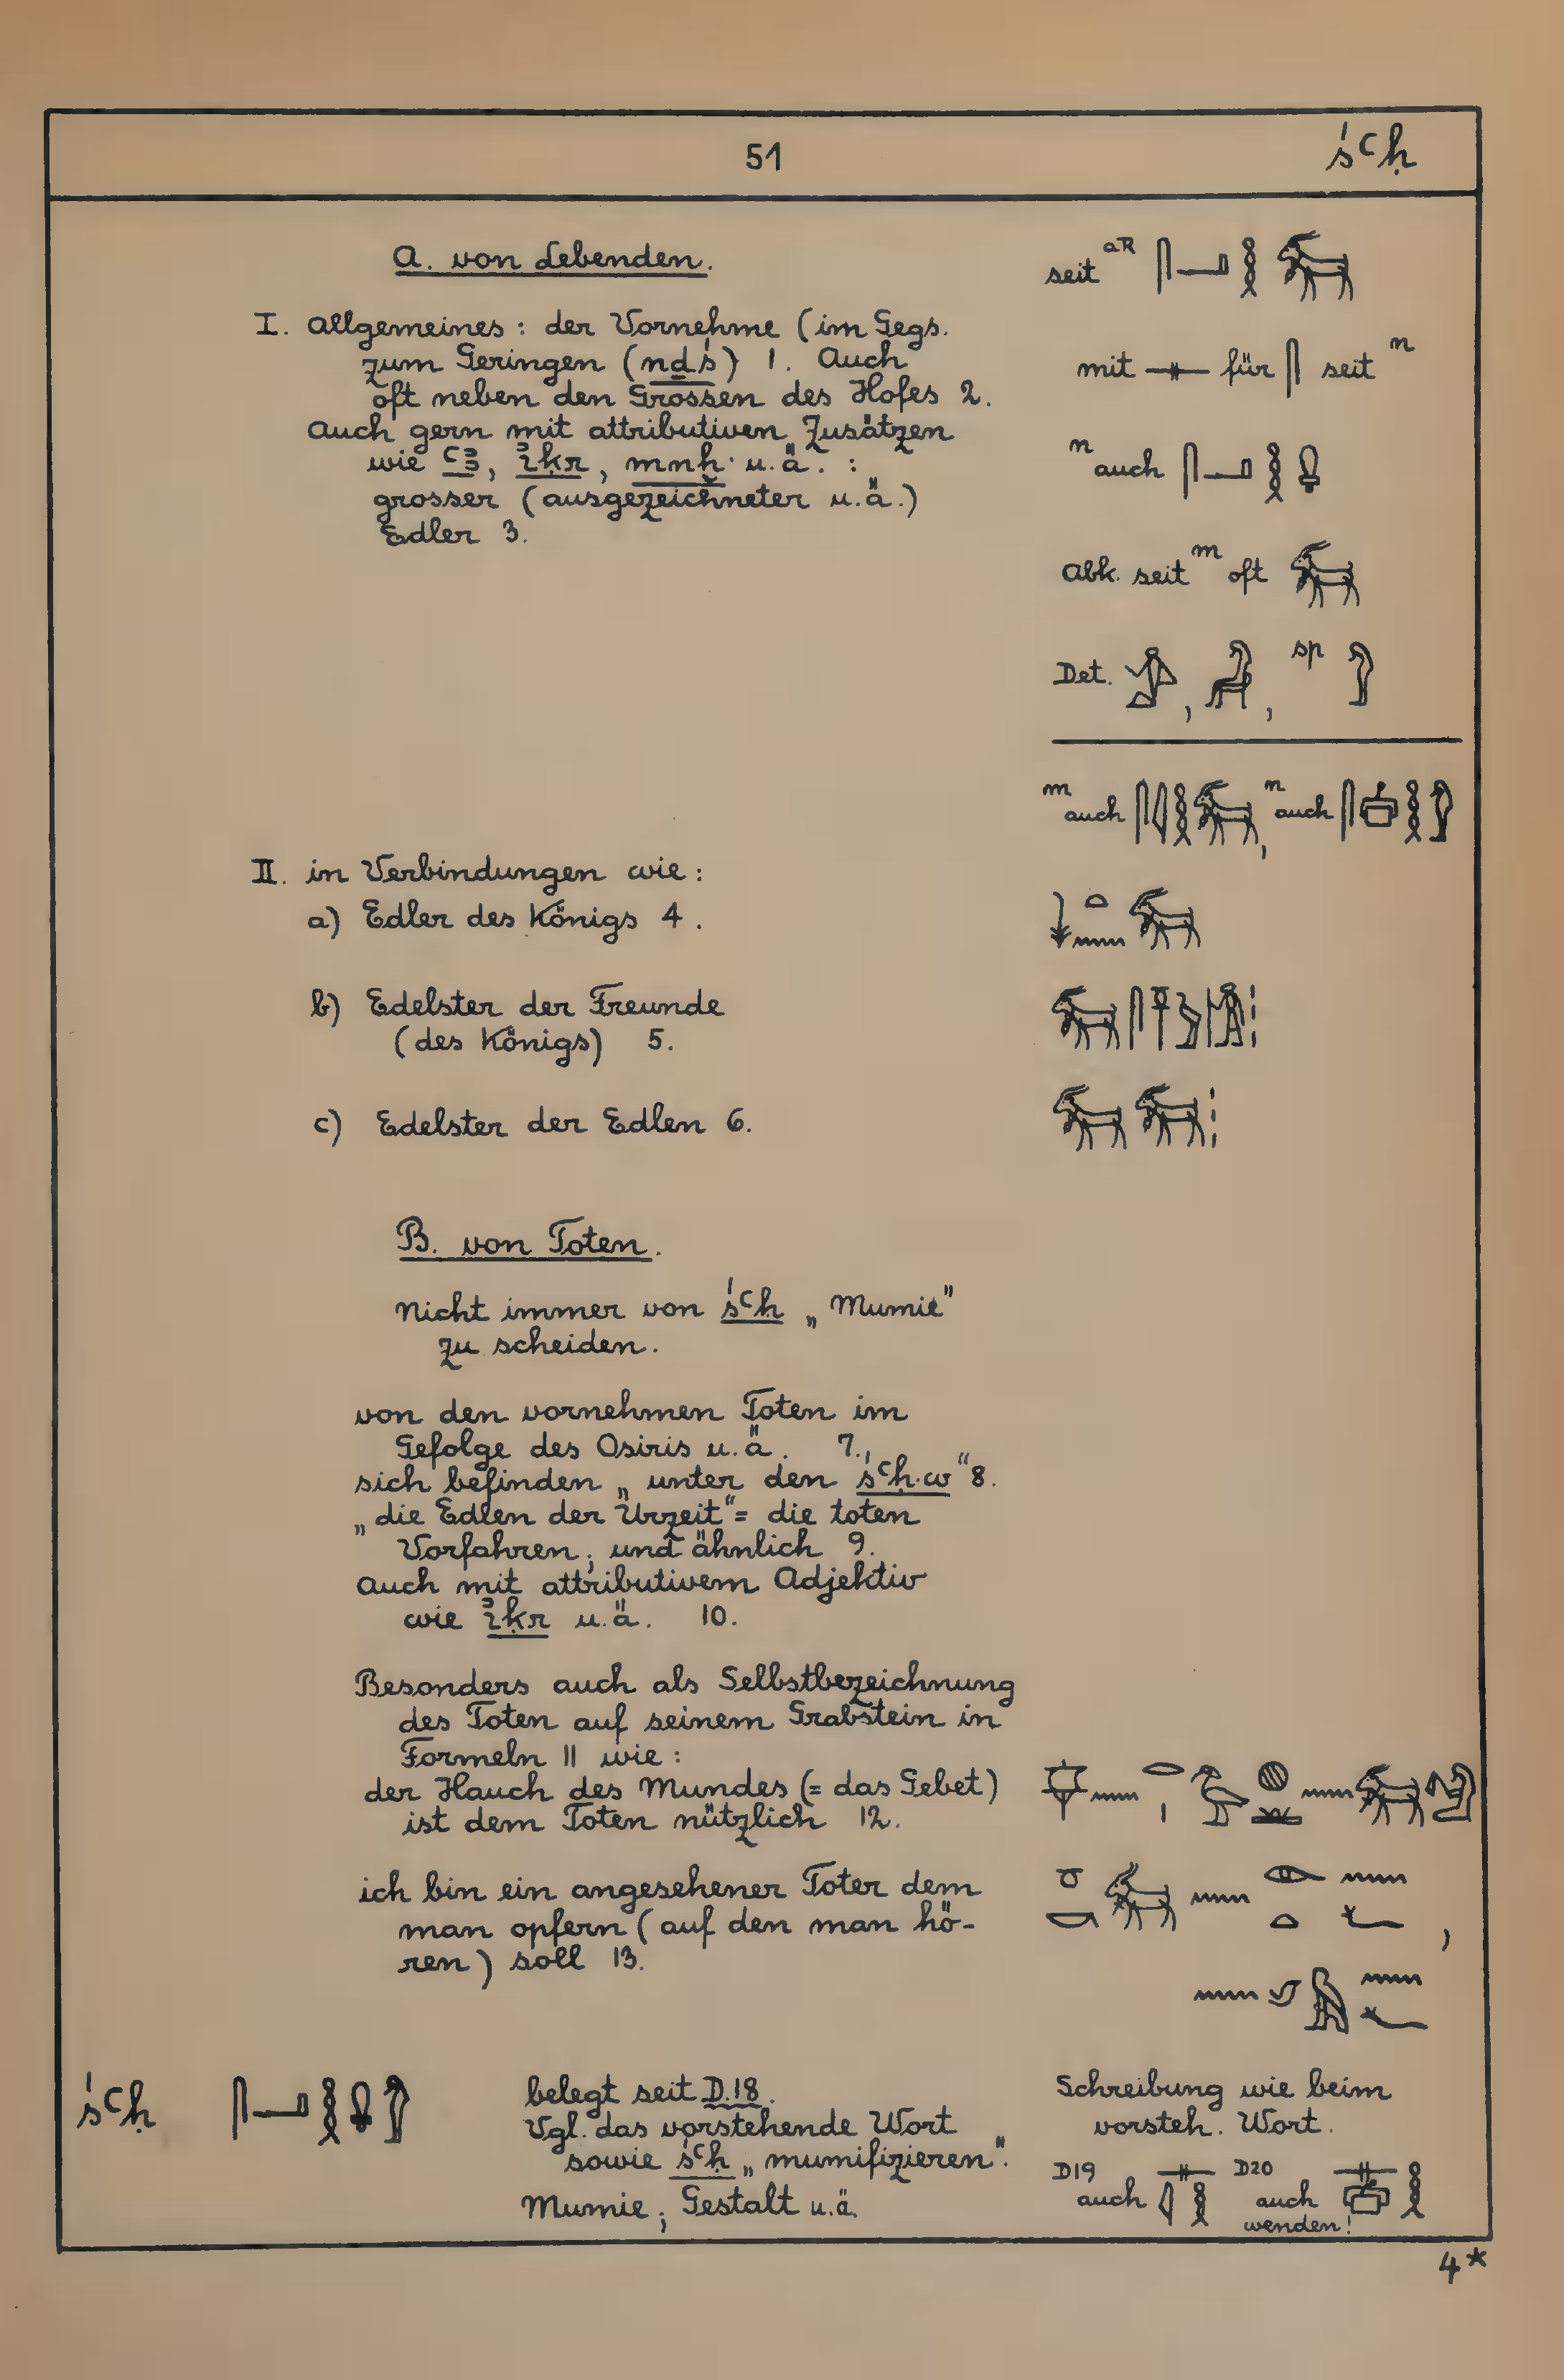 51
śꜥḥ
A. von Lebenden.
I. Allgemeines: der Vornehme (im Gegs.
zum Geringen (nḏś) 1. Auch
oft neben den Grossen des Hofes 2.
Auch gern mit attributiven Zusätzen
wie ꜥꜣ, ꞽḳr, mnḫ u.ä. :
grosser (ausgezeichneter u.ä.)
Edler 3.
seit aR 𓋴𓂝𓎛𓃸
mit 𓊃 für 𓋴 seit n
n auch 𓋴𓂝𓎛𓋨
Abk. seit m oft 𓃸
Det.
sp
m auch 𓋴𓇋𓎛𓃸, n auch
II. in Verbindungen wie:
a) Edler des Königs 4.
𓇓𓏏𓈖𓃸
b) Edelster der Freunde
(des Königs) 5.
c) Edelster der Edlen 6.
𓃸𓃸𓏥
B. von Toten.
Nicht immer von śꜥḥ „Mumie"
zu scheiden.
von den vornehmen Toten im
Gefolge des Osiris u.ä. 7.,
sich befinden „unter den śꜥḥ.w“ 8.
„die Edlen der Urzeit“= die toten
Vorfahren; und ähnlich 9.
Auch mit attributivem Adjektiv
wie ꞽḳr u.ä. 10.
Besonders auch als Selbstbezeichnung
des Toten auf seinem Grabstein in
Formeln 11 wie:
der Hauch des Mundes (= das Gebet)
ist dem Toten nützlich 12.
ich bin ein angesehener Toter dem
man opfern (auf den man hö-
ren) soll 13.
śꜥḥ
belegt seit D.18.
Vgl. das vorstehende Wort
sowie śꜥḥ „mumifizieren".
Mumie; Gestalt u.ä.
Schreibung wie beim
vorsteh. Wort.
D19 auch 𓊃𓇋𓎛 D20 auch
wenden!
4*